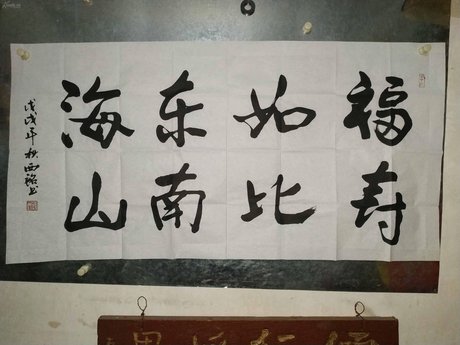 福寿
如比
东南
海山
戊戌年秋西铭书